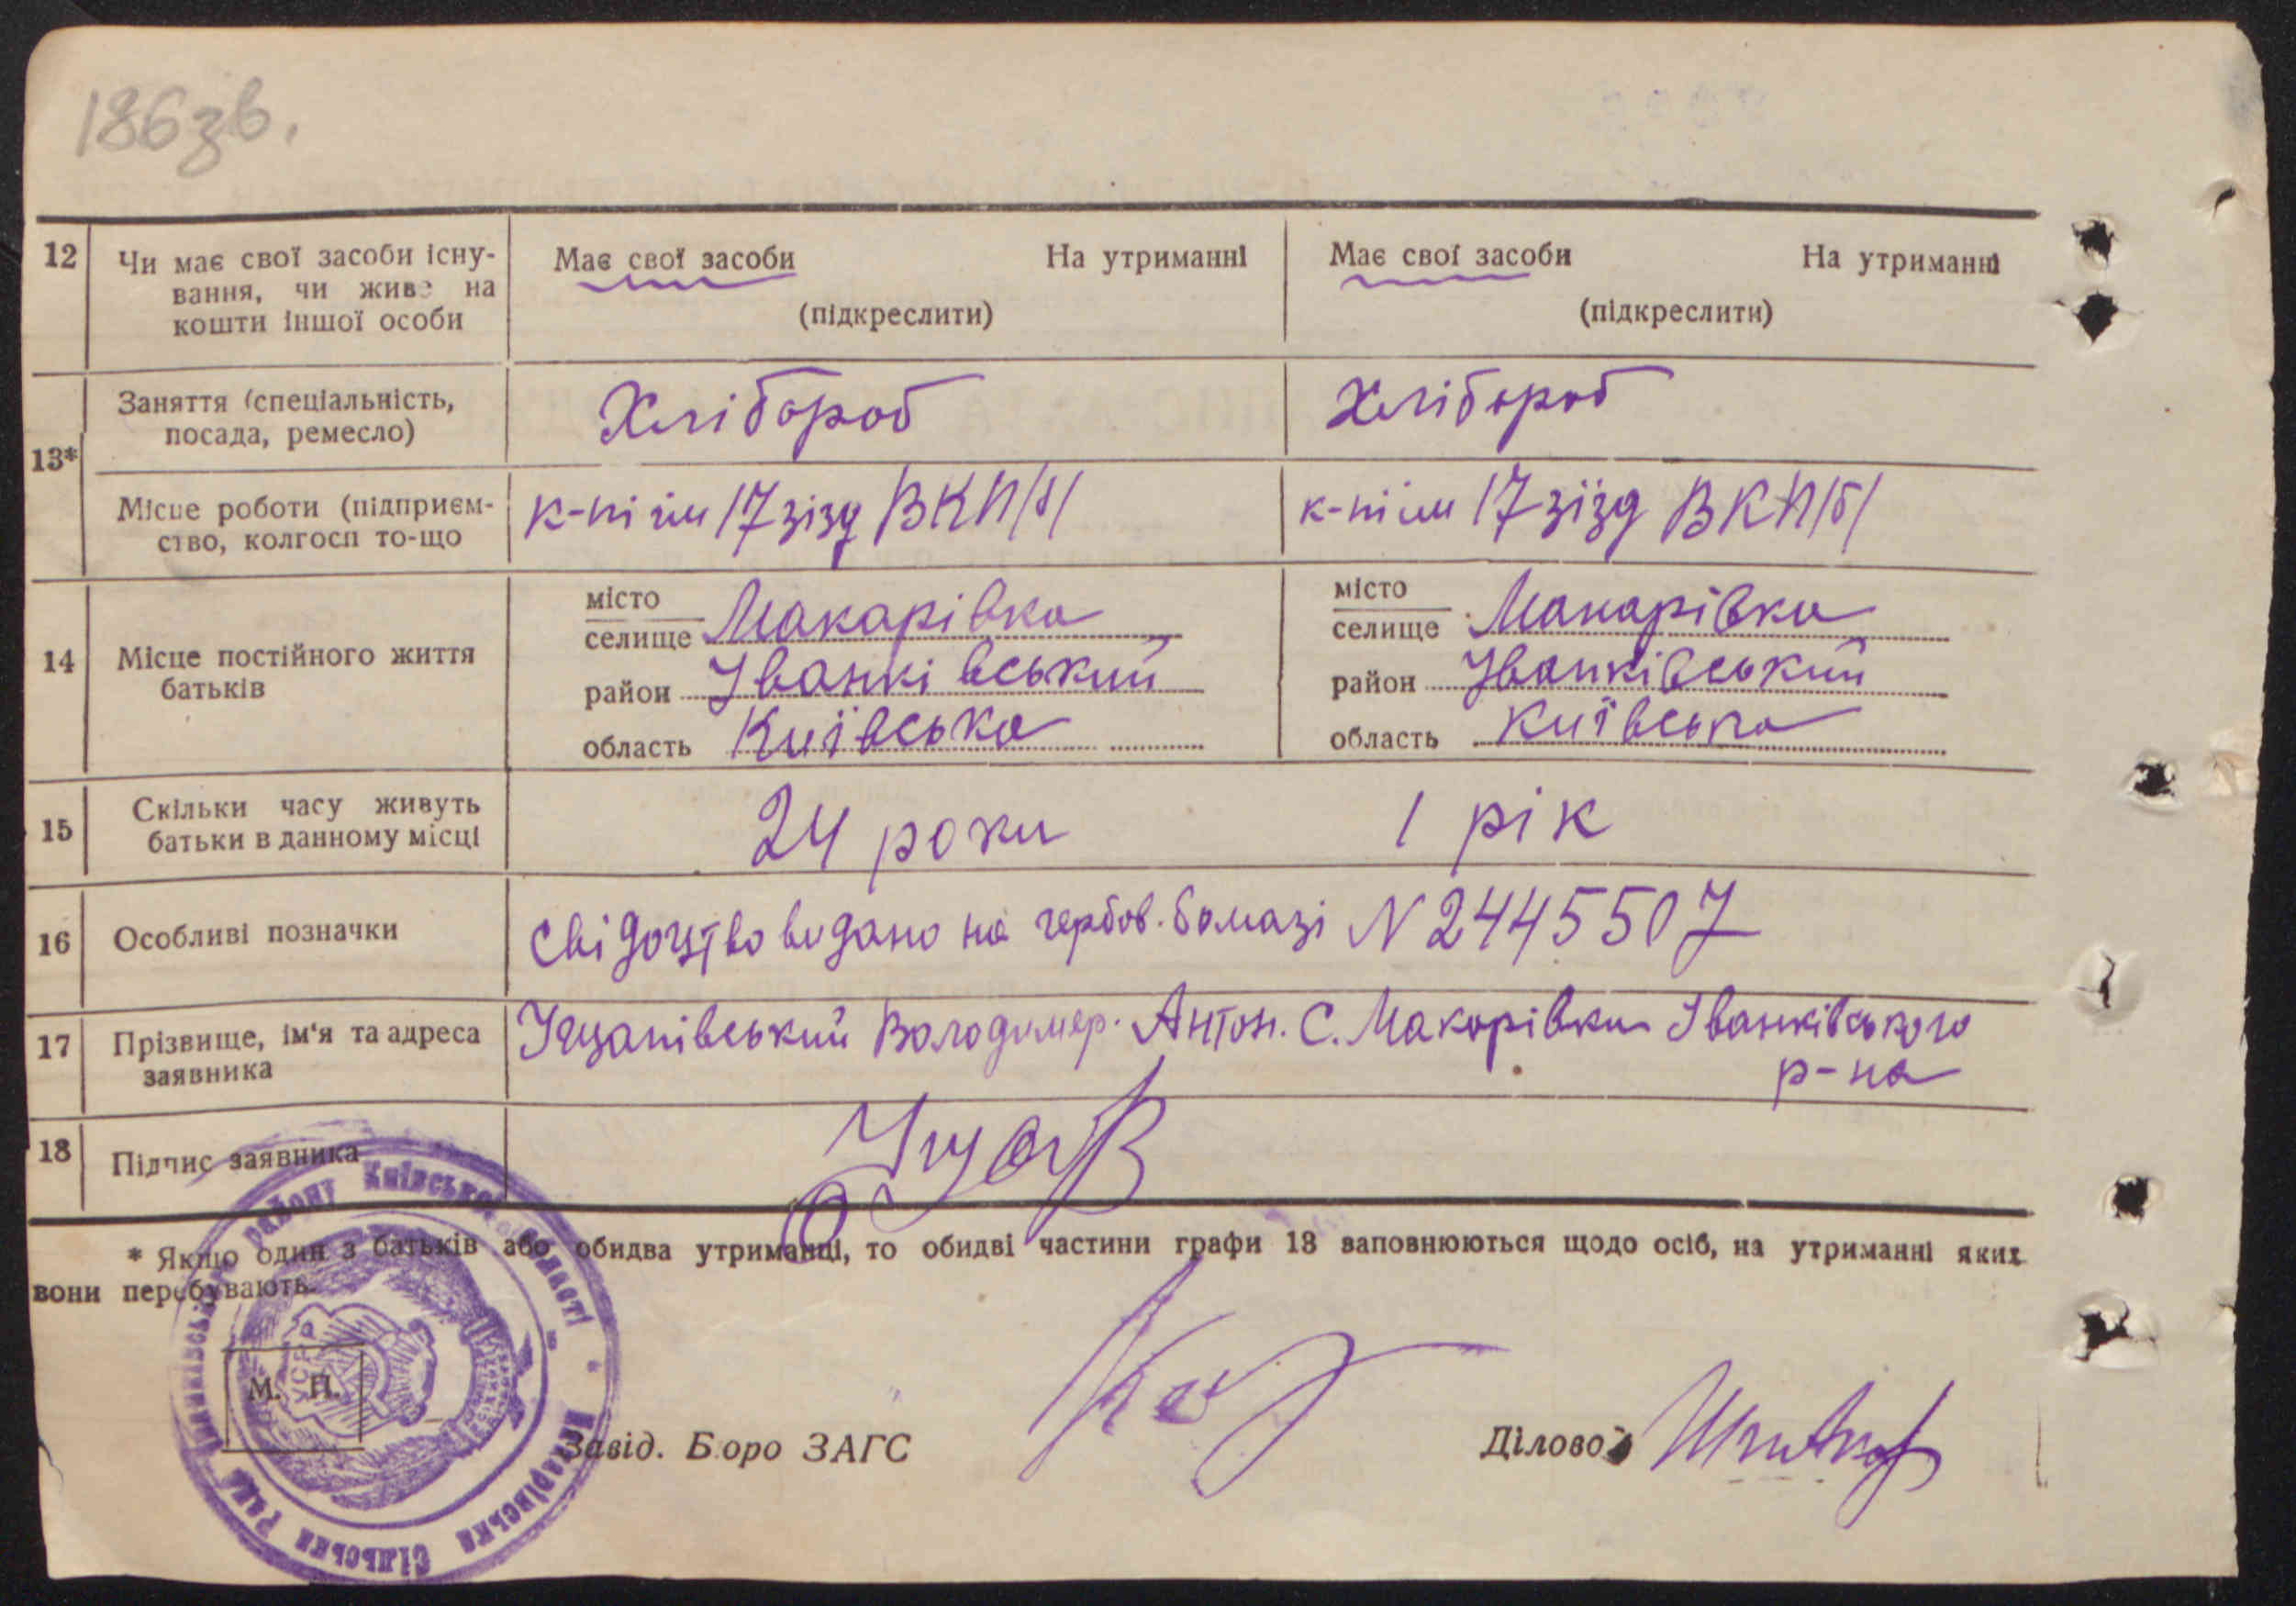 186зв.
12 Чи має свої засоби існу-
вання, чи живе на
кошти іншої особи
Має свої засоби На утриманні
(підкреслити)
Має свої засоби На утриманні
(підкреслити)
13*
Заняття (спеціальність,
посада, ремесло)
Хлібороб
Хлібороб
Місце роботи (підприєм-
ство, колгосп то-що
к-пі ім 17 зізд ВКП/б/
к-пі ім 17 зїзд ВКП/б/
14 Місце постійного життя
батьків
місто
селище Макарівка
район Іванківський
область Київська
місто
селище Макарівка
район Іванківський
область Київська
15 Скільки часу живуть
батьки в данному місці
24 роки
1 рік
16 Особливі позначки
Свідоцтво видано на гербов. бомазі N 2445507
17 Прізвище, ім'я та адреса
заявника
Володимер. Антон. С. Макарівки Іванківського
р-на
18 Підпис заявника
* Якщо один з батьків або обидва утриманці, то обидві частини графи 13 заповнюються щодо осіб, на утриманні яких
вони перебувають.
М. П.
Завід. Бюро ЗАГС
Діловод
Макарівська Сільська Рада Іванківського району Київської області
УСРР